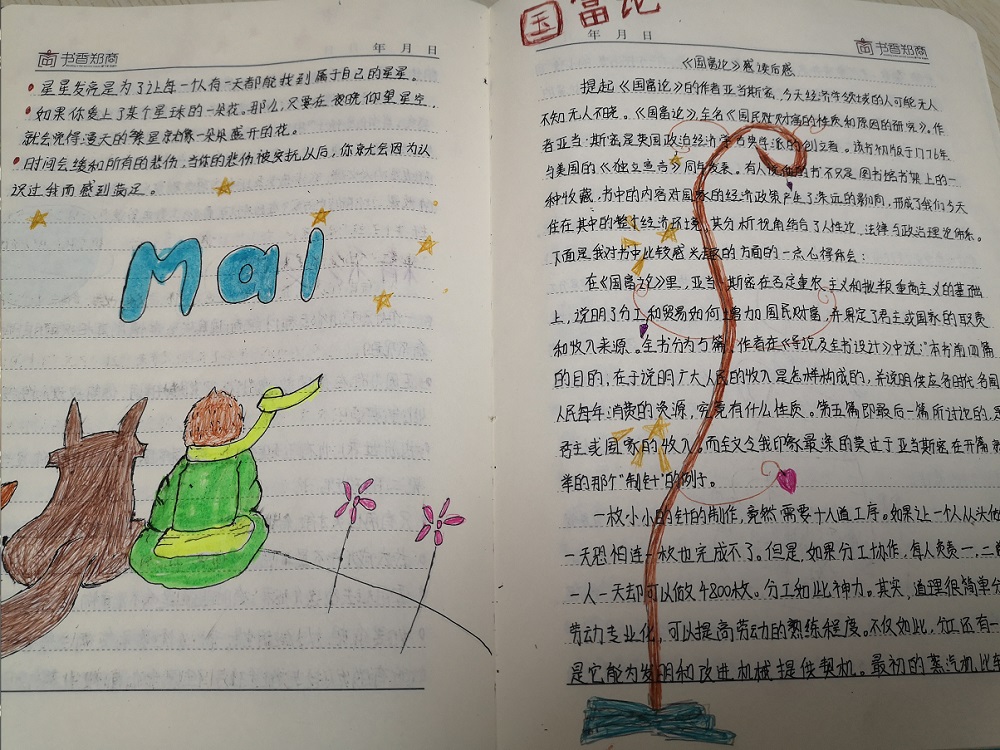 书香郑商
年 月 日
星星发亮是为了让每一个人有一天都能找到属于自己的星星。
如果你爱上了某个星球的一朵花。那么,只要在夜晚仰望星空,
就会觉得漫天的繁星就像一朵朵盛开的花。
时间会缓和所有的悲伤,当你的悲伤被安抚以后,你就会因为认
识过我而感到满足。
Mal
国富论
年 月 日
书香郑商
《国富论》感读后感
提起《国富论》的作者亚当斯密,今天经济学领域的人可能无人
不知无人不晓。《国富论》全名《国民财富的性质和原因的研究》。作
者亚当·斯密是英国政治经济学古典学派的创立者。该书初版于1776年
与美国的《独立宣言》同年发表。有人说他的书不只是图书馆书架上的一
种收藏,书中的内容对国家的经济政策产生了深远的影响,形成了我们今天
住在其中的整个经济环境,其分析视角结合了人性论、法律与政治理论体系。
下面是我对书中比较感兴趣的方面的一点心得体会:
在《国富论》里,亚当·斯密在否定重农主义和批判重商主义的基础
上,说明了分工和贸易如何增加国民财富,并界定了君主或国家的职责
和收入来源。全书分为五篇,作者在《导论及全书设计》中说:"本书前四篇
的目的,在于说明广大人民的收入是怎样构成的,并说明供应各时代各国
人民每年消费的资源,究竟有什么性质。第五篇即最后一篇所讨论的,是
君主或国家的收入。而全文令我印象最深的莫过于亚当斯密在开篇
举的那个"制针"的例子。
一枚小小的针的制作,竟然需要十八道工序。如果让一个人从头做
一天恐怕连一枚也完成不了。但是,如果分工协作,每人负责一、二
一人一天却可以做文4800枚。分工如此神力。其实,道理很简单
劳动专业化,可以提高劳动的熟练程度。不仅如此,分工还有一
是它能为发明和改进机械提供契机。最初的蒸汽机,比